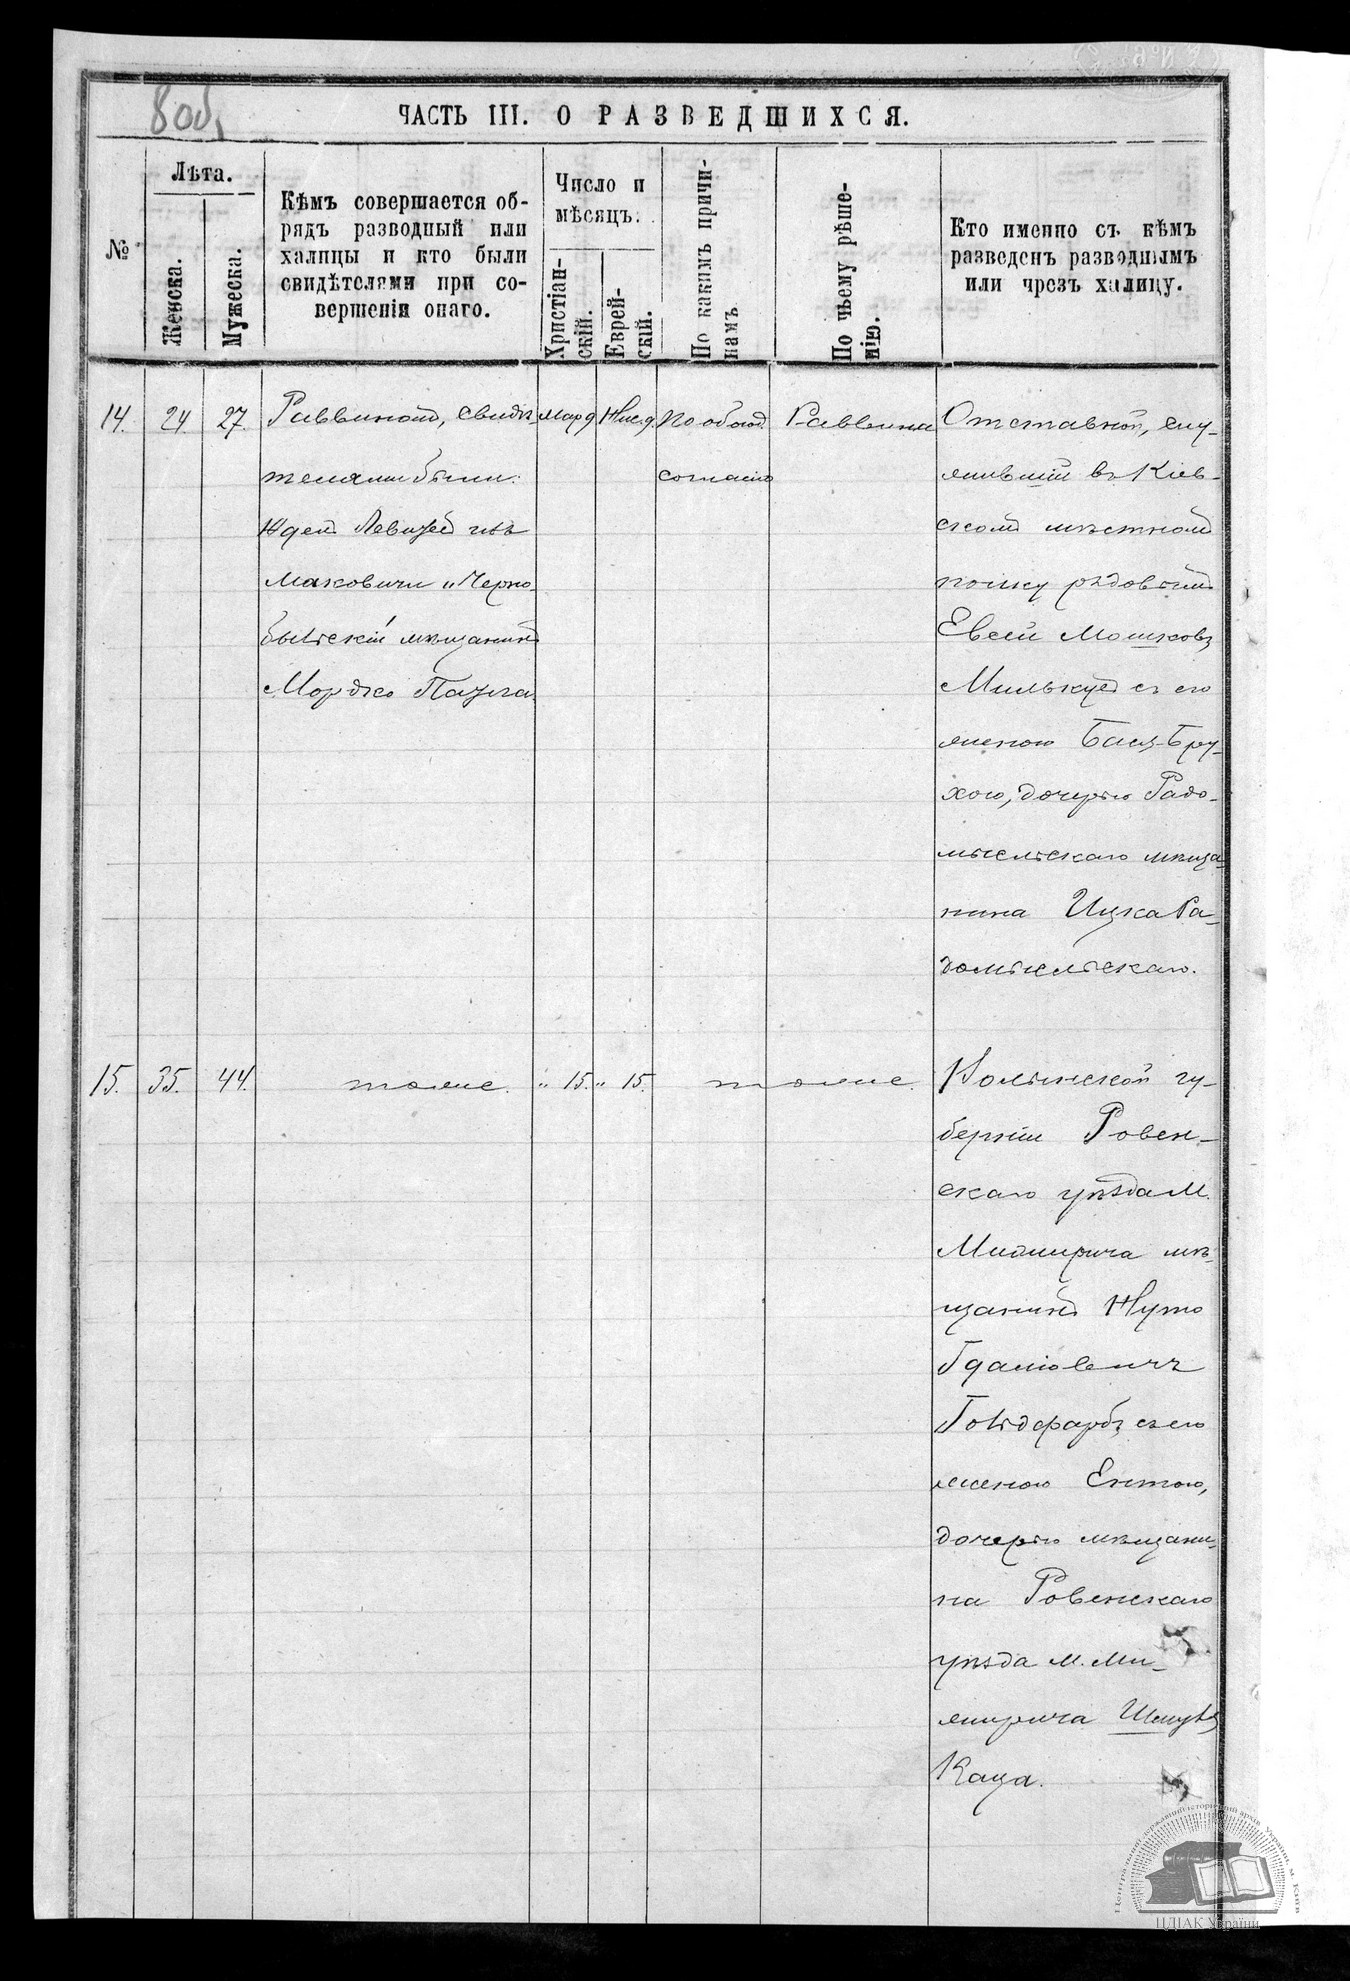 8 об.
ЧАСТЬ III. О РАЗВЕДШИХСЯ.
№
Лѣта.
Женска.
Мужеска.
Кѣмъ совершается об-
рядъ разводный или
халицы и кто были
свидѣтелями при со-
вершеніи онаго.
Число и
мѣсяцъ.
Христіан-
скій.
Еврей-
скій.
По какимъ причи-
намъ
По чьему рѣше-
нію.
Кто именно съ кѣмъ
разведенъ разводнымъ
или чрезъ халицу.
14. 24 27.
Раввиномъ, свидѣ-
телями были:
Левицъ изъ
Маковичи и Черно-
быльскій мѣщанинъ
Мордко
Мар. 9
Нис. 9.
По обоюд.
согласію
Раввина
Отставной, слу-
жившій въ Кіев-
скомъ мѣстномъ
полку рядовымъ
Евсей Мошковъ
съ его
женою Бася-Бру-
хою, дочерью Радо-
мысльскаго мѣща-
нина Ицка Ра-
домысльскаго.
15. 35. 44.
тоже.
" 15.
" 15.
тоже.
Волынской гу-
берніи Ровен-
скаго уѣзда м.
Межирича мѣ-
щанинъ Нуто
Гдаліовичъ
Гольдфарбъ съ его
женою Ентою,
дочерью мѣщани-
на Ровенскаго
уѣзда м. Ме-
жирича Шмуля
Каца.
Центральний державний історичний архів України, м. Київ
ЦДІАК України